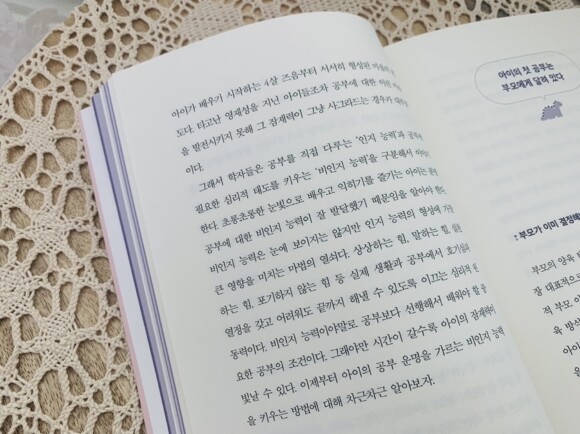 아이가 배우기 시작하는 4살 즈음부터 서서히 형성된
도다. 타고난 영재성을 지닌 아이들조차 공부에 대한 이런
을 발전시키지 못해 그 잠재력이 그냥 사그라드는 경우가
이다.
그래서 학자들은 공부를 직접 다루는 '인지 능력'과 공
필요한 심리적 태도를 키우는 '비인지 능력'을 구분해서
한다. 초롱초롱한 눈빛으로 배우고 익히기를 즐기는 아이는
공부에 대한 비인지 능력이 잘 발달했기 때문임을 알아야 한다.
비인지 능력은 눈에 보이지는 않지만 인지 능력의 형성에 가
큰 영향을 미치는 마법의 열쇠다. 상상하는 힘, 말하는 힘,
하는 힘, 포기하지 않는 힘 등 실제 생활과 공부에서 호기심
열정을 갖고 어려워도 끝까지 해낼 수 있도록 이끄는 심리적
동력이다. 비인지 능력이야말로 공부보다 선행해서 배워야 할
요한 공부의 조건이다. 그래야만 시간이 갈수록 아이의 잠재력이
빛날 수 있다. 이제부터 아이의 공부 운명을 가르는 비인지 능력
을 키우는 방법에 대해 차근차근 알아보자.
아이의 첫 공부는
부모에게 달려 있다
부모가 이미 결정해
부모의 양육 태
장 대표적으
적 부모,
육 방식
아이
도